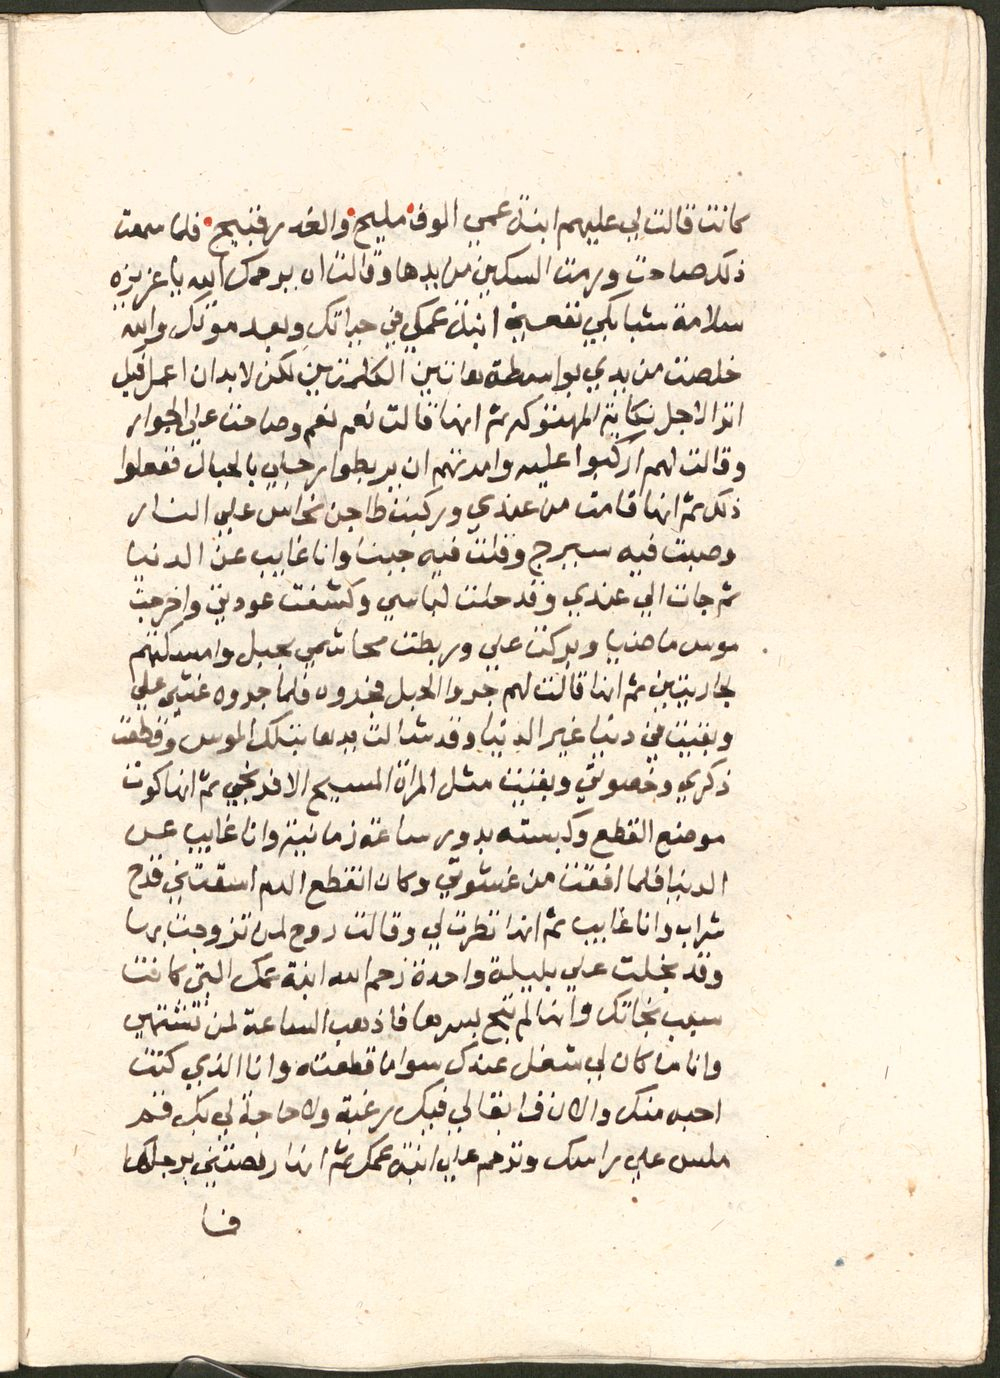 كانت قالت لي عليهم ابنت عمي الوفا مليح والغدر قبيح فلما سمعت
ذلك صاحت ورمت السكين من يدها وقالت ان يرحمك الله يا عزيزه
سلامة شبابكي نفعتيه ابنت عمكي في حياتك وبعد موتك والله
خلصت من يدي بواسطة هاتين الكلمتين لكن لابد ان اعمل فيك
اثرا لاجل نكاية المهتوكه ثم انها قالت نعم نعم وصاحت علي الجوار
وقالت لهم اركبوا عليه وامرتهم ان يربطوا رجلي بالحبال ففعلوا
ذلك ثم انها قامت من عندي وركبت طاجن نحاس علي النار
وصبت فيه سيرج وقلت فيه جبنا وانا غايب عن الدنيا
ثم جات الي عندي وقد حلت لباسي وكشفت عورتي واخرجت
موس ماضيا وبركت علي وربطت محاشمي بحبل وامسكتهم
لجاريتين ثم انها قالت لهم جروا الحبل فجروه فلما جروه غشي علي
وبقيت في دنيا غير الدنيا وقد شالت يدها بتلك الموس وقطعت
ذكري وخصوتي وبقيت مثل المراة المسيح الافرنجي ثم انها كوت
موضع القطع وكبسته بدرور ساعة زمانية وانا غايب عن
الدنيا فلما افقت من غشوتي وكان انقطع الدم اسقتني قدح
شراب وانا غايب ثم انها نظرت لي وقالت روح لمن تزوجت بها
وقد بخلت علي بليلة واحدة رحم الله ابنة عمك التي كانت
سبب نجاتك وانها لم تبح بسرها فاذهب الساعة لمن تشتهي
وانا ما كان لي شغل عندك سوا ما قطعته وانا الذي كنت
احبه منك والان فما بقا لي فيك رغبة ولا حاجة لي بك فقم
ملس علي راسك وترحم علي ابنة عمك ثم انها رفصتني برجلها
فما